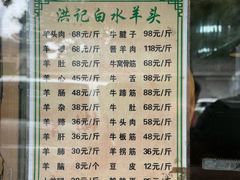 洪记白水羊头
羊头肉 68元/斤 牛腱子 98元/斤
羊 68元/斤 酱羊肉 118元/斤
羊肚 68元/斤 牛窝骨筋 68元/斤
羊心 45元/斤 牛舌 98元/斤
羊肠 48元/斤 牛蹄筋 68元/斤
羊杂 38元/斤 牛肚 68元/斤
羊蹄 38元/斤 牛头肉 68元/斤
羊肝 38元/斤 牛板筋 68元/斤
羊肺 30元/斤 羊拐筋 68元/斤
羊脑 8元/个 豆皮 12元/斤